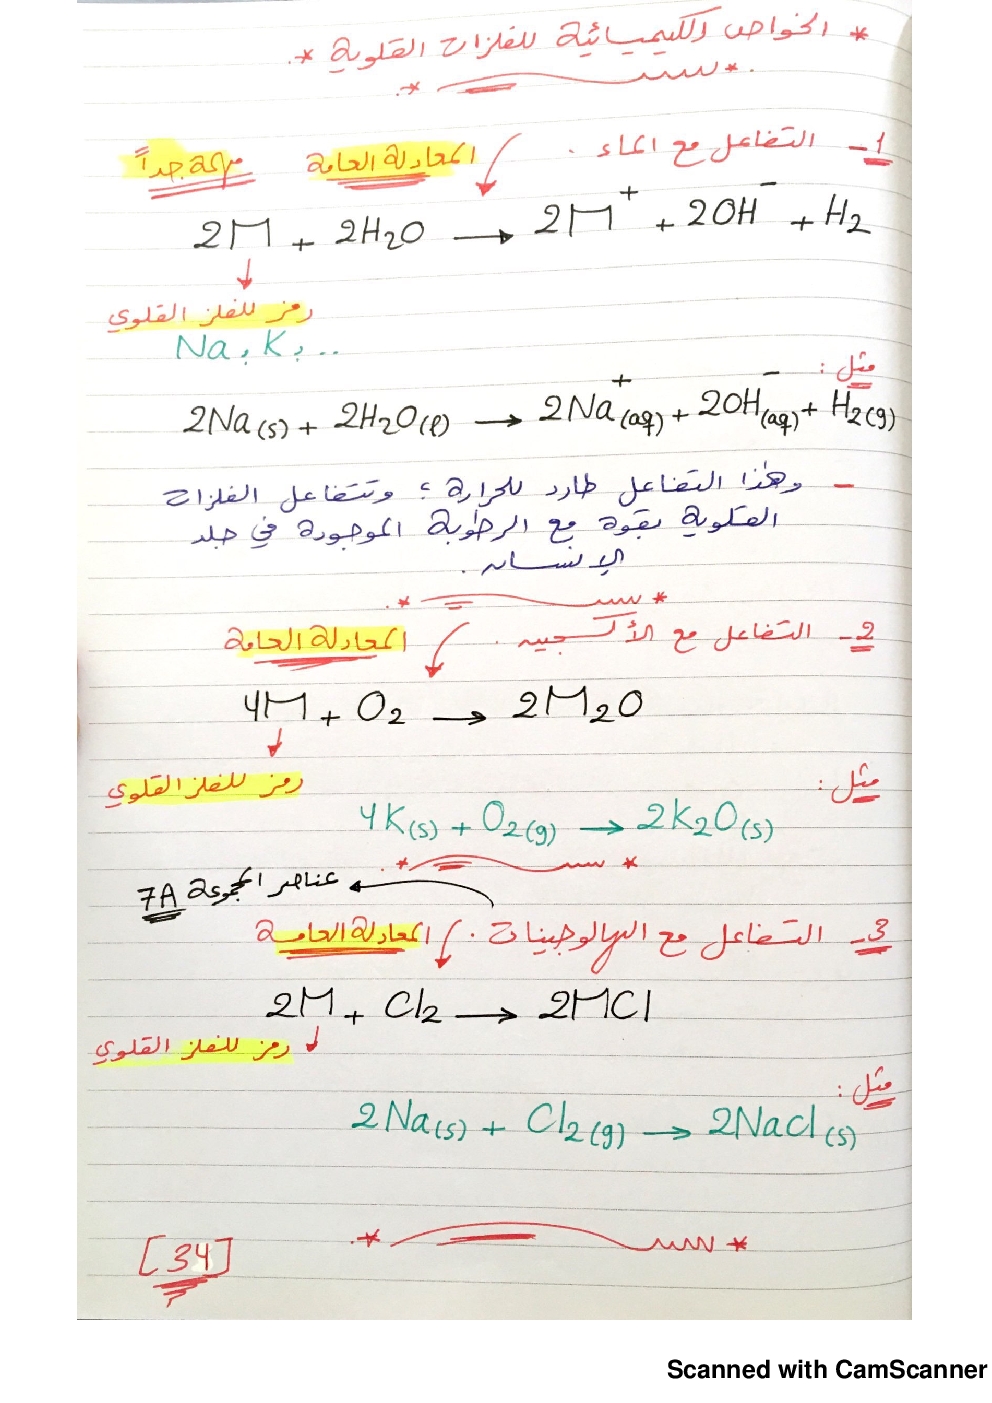 * الخواص الكيميائية للفلزات القلوية *
1- التفاعل مع الماء . المعادلة العامة مهمة جداً
2M + 2H₂O → 2M⁺ + 2OH⁻ + H₂
رمز للفلز القلوي
Na, K, ..
مثل :
2Na(s) + 2H₂O(l) → 2Na⁺(aq) + 2OH⁻(aq) + H₂(g)
- وهذا التفاعل طارد للحرارة ؛ وتتفاعل الفلزات
القلوية بقوة مع الرطوبة الموجودة في جلد
الإنسان .
2- التفاعل مع الأكسجين . المعادلة العامة
4M + O₂ → 2M₂O
رمز للفلز القلوي
مثل :
4K(s) + O₂(g) → 2K₂O(s)
عناصر المجموعة 7A
3- التفاعل مع الهالوجينات . المعادلة العامة
2M + Cl₂ → 2MCl
رمز للفلز القلوي
مثل :
2Na(s) + Cl₂(g) → 2NaCl(s)
[34]
Scanned with CamScanner